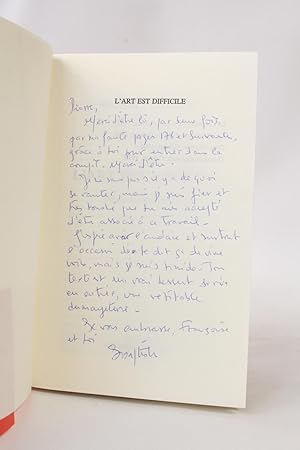 L'ART EST DIFFICILE
Pierre,
Merci d'être là, par deux fois,
par ma faute pages 176 et suivantes,
grâce à toi pour entrer dans la
Merci d'être
Je ne sais pas s'il y a de quoi
se vanter, mais je suis fier et
très touché que tu aies accepté
d'être associé à ce travail.
avoir l'audace et surtout
l'occasion de te dire ça de vive
voix, mais je suis timide. Ton
texte est un vrai dessert servi
en entrée, une véritable
Je vous embrasse, Françoise
et toi